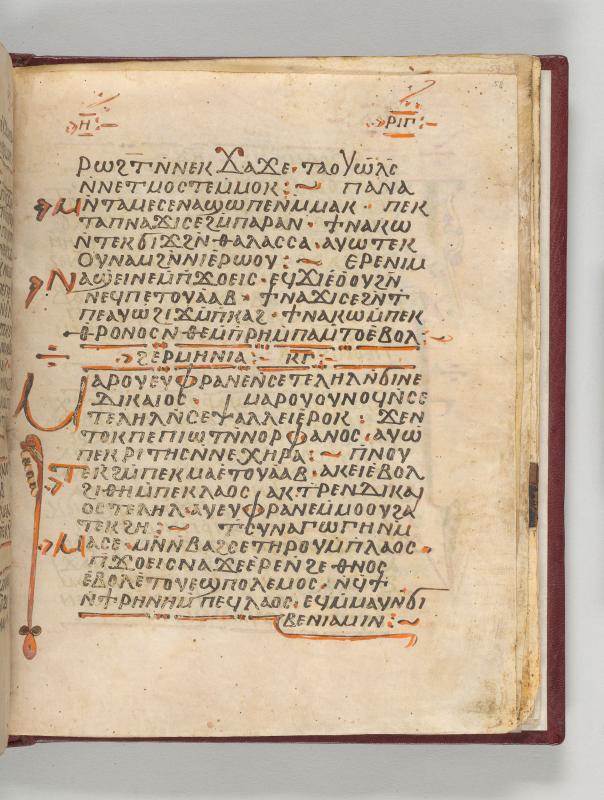 Ⲏ ⲢⲒⲄ
ⲣⲱϩⲧ̅ⲛ̅ⲛⲉⲕϪⲁϫⲉ· ⲧⲁⲟⲩⲱⲗⲥ̅
ⲛ̅ⲛⲉⲧⲙⲟⲥⲧⲉⲙ̅ⲙⲟⲕ :~ ⲡⲁⲛⲁ
ⲙⲛ̅ⲧⲁⲙⲉⲥⲉⲛⲁϣⲱⲡⲉⲛⲙ̅ⲙⲁⲕ· ⲡⲉⲕ
ⲧⲁⲡⲛⲁϫⲓⲥⲉϩⲙ̅ⲡⲁⲣⲁⲛ· ϯⲛⲁⲕⲱ
ⲛ̅ⲧⲉⲕϭⲓϫϩⲛ̅ⲑⲁⲗⲁⲥⲥⲁ· ⲁⲩⲱⲧⲉⲕ
ⲟⲩⲛⲁⲙϩⲛ̅ⲛⲓⲉⲣⲱⲟⲩ :~ ⲉⲣⲉⲛⲓⲙ
Ⲛⲁϣⲉⲓⲛⲉⲙ̅ⲡϫⲟⲉⲓⲥ· ⲉϥϫⲓⲉⲟⲟⲩϩⲛ̅
ⲛⲉϥⲡⲉⲧⲟⲩⲁⲁⲃ· ϯⲛⲁϫⲓⲥⲉϩⲛ̅ⲧ
ⲡⲉⲁⲩⲱϩⲓϫⲙ̅ⲡⲕⲁϩ· ϯⲛⲁⲕⲱⲙ̅ⲡⲉⲕ
ⲑⲣⲟⲛⲟⲥⲛ̅ⲑⲉⲙ̅ⲡⲣⲏⲙ̅ⲡⲁⲙ̅ⲧⲟⲉⲃⲟⲗ:
ϩⲉⲣⲙⲏⲛⲓⲁ:- ⲕⲅ:-
Ⲙⲁⲣⲟⲩⲉⲩⲫⲣⲁⲛⲉⲛ̅ⲥⲉⲧⲉⲗⲏⲗⲛ̅ϭⲓⲛⲉ
ⲇⲓⲕⲁⲓⲟⲥ· ⲙⲁⲣⲟⲩⲟⲩⲛⲟϥⲛ̅ⲥⲉ
ⲧⲉⲗⲏⲗⲛ̅ⲥⲉⲯⲁⲗⲗⲉⲓⲉⲣⲟⲕ : ϫⲉⲛ
ⲧⲟⲕⲡⲉⲡⲓⲱⲧⲛ̅ⲛⲟⲣⲫⲁⲛⲟⲥ· ⲁⲩⲱ
ⲡⲉⲕⲣⲓⲧⲏⲥⲛ̅ⲛⲉⲭⲏⲣⲁ :~ ⲡⲛⲟⲩ
Ⲧⲉϩⲙ̅ⲡⲉⲕⲙⲁⲉⲧⲟⲩⲁⲁⲃ· ⲁⲕⲉⲓⲉⲃⲟⲗ
ϩⲓⲑⲏⲙ̅ⲡⲉⲕⲗⲁⲟⲥ· ⲁⲕⲧⲣⲉⲛⲇⲓⲕⲁⲓ
ⲟⲥⲧⲉⲗⲏⲗ· ⲁⲩⲉⲩⲫⲣⲁⲛⲉⲙⲟⲟⲩϩⲁ
ⲧⲉⲕϩⲏ :~ ⲧⲥⲩⲛⲁⲅⲱⲅⲏⲛⲙ̅
Ⲙⲁⲥⲉ· ⲙⲛ̅ⲛ̅ⲃⲁϩⲥⲉⲧⲏⲣⲟⲩⲙ̅ⲡⲗⲁⲟⲥ·
ⲡϫⲟⲉⲓⲥⲛⲁϫⲉⲉⲣⲉⲛϩⲉⲑⲛⲟⲥ
ⲉⲃⲟⲗⲉⲧⲟⲩⲉϣⲡⲟⲗⲉⲙⲟⲥ· ⲛϥϯ
ⲛ̅ϯⲣⲏⲛⲏⲙ̅ⲡⲉϥⲗⲁⲟⲥ· ⲉϥⲙ̅ⲙⲁⲩⲛ̅ϭⲓ
ⲃⲉⲛⲓⲁⲙⲓⲛ :~